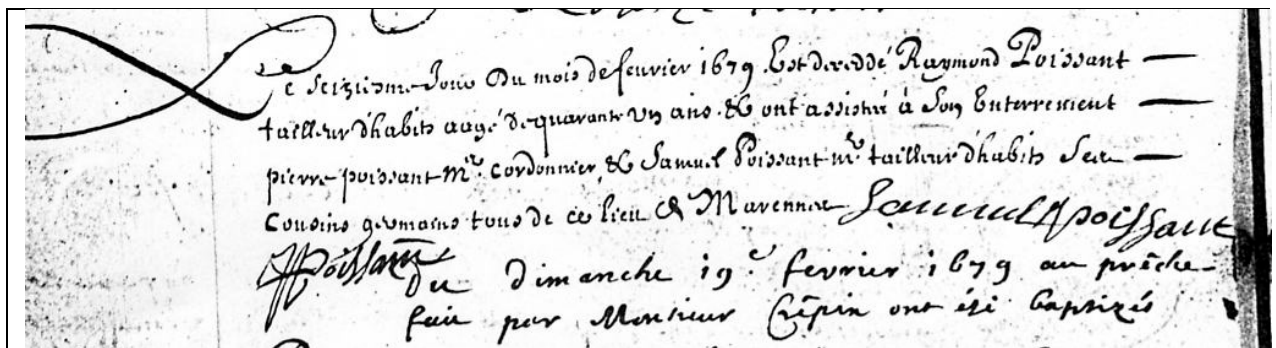 Le seiziesme Jour Du mois de feuvrier 1679 Est deceddé Raymond Poissant
tailleur d'habits aagé de quarante un ans & ont assisté à son Enterrement
pierre poissant Mre. Cordonnier, & Samuel Poissant mre tailleur d'habits Ses
Cousins germains tous de ce lieu de Marennes Samuel poissant
PPoissant
Du Dimanche 19e fevrier 1679 au prêche
fait par Monsieur Crêpin ont été baptizés